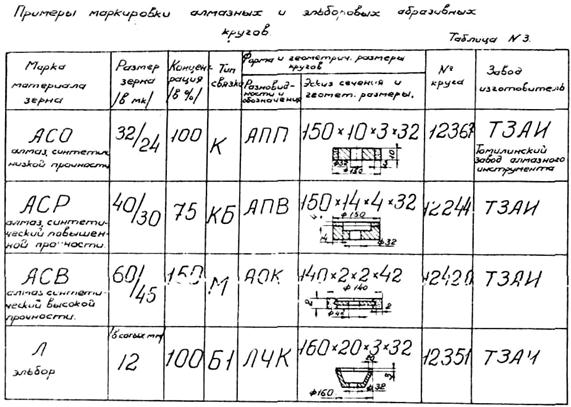 Примеры маркировки алмазных и эльборовых абразивных
кругов
Таблица N 3.
Марка материала зерна
Размер зерна /в мк/
Концентрация /в %/
Тип связки
Форма и геометрич. размеры кругов
Разновидности и обозначения
Эскиз сечения и геомет. размеры.
N° круга
Завод изготовитель
АСО
алмаз, синтетич.
низкой прочности
32/24
100
К
АПП
150×10×3×32
ф32
ф150
10
3
12367
ТЗАИ
Томилинский
завод алмазного
инструмента
АСР
алмаз, синтетический повышенной прочности.
40/30
75
КБ
АПВ
150×14×4×32
ф150
ф32
12244
ТЗАИ
АСВ
алмаз синтетический высокой
прочности.
60/45
150
М
АОК
140×2×2×42
ф140
ф42
2
12420
ТЗАИ
Л
эльбор
/в сотых мм/
12
100
Б1
ЛЧК
160×20×3×32
ф160
ф32
3
12351
ТЗАИ